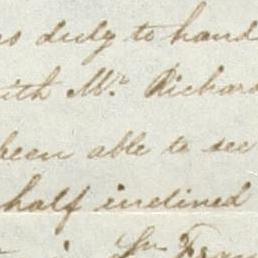 duly to hand
with Mr. Richard
been able to see
half inclined